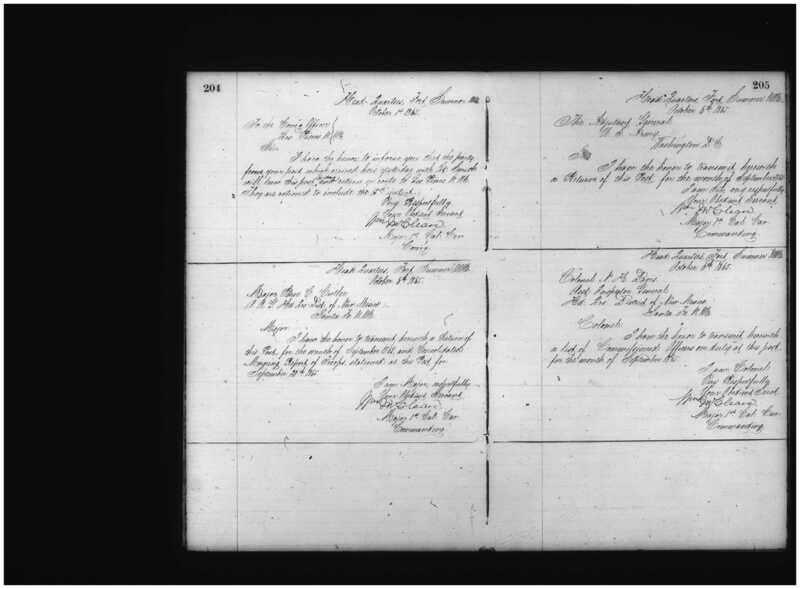 204
Head Quarters, Fort Sumner NM
October 1st 1865.
To the Comdg Officer
Sir.
I have the honor to inform you that the party
from your post which arrived here yesterday with
will leave this post en route to
They are rationed to include the 5th instant.
Very Respectfully
Your Obedient Servant
Wm McCleave
Major 1st Cal. Cav
Comdg
Head Quarters, Fort Sumner NM
October 5th 1865.
Major Ben C. Cutler
A. A. G. Hd Qrs Dist. of New Mexico
Santa Fe N.M.
Major
I have the honor to transmit herewith a Return of
this Post, for the month of September 1865, and Consolidated
Morning Report of Troops, stationed at this Post for
September 30th 1865.
I am Major, respectfully
Your Obedient Servant
Wm McCleave
Major 1st Cal. Cav
Commanding
205
Head Quarters, Fort Sumner NM
October 5th 1865.
The Adjutant General
U. S. Army
Washington D.C.
Sir
I have the honor to transmit herewith
a Return of this Post, for the month of September 1865
I am Sir, very respectfully
Your Obedient Servant
Wm McCleave
Major 1st Cal. Cav
Commanding
Head Quarters, Fort Sumner NM
October 5th 1865.
Colonel N. H. Davis
Asst Inspector General
Hd Qrs District of New Mexico
Santa Fe N.M.
Colonel:
I have the honor to transmit herewith
a list of Commissioned Officers on duty at this post
for the month of September 1865
I am Colonel
Very Respectfully
Your Obedient Servt
Wm McCleave
Major 1st Cal. Cav.
Commanding